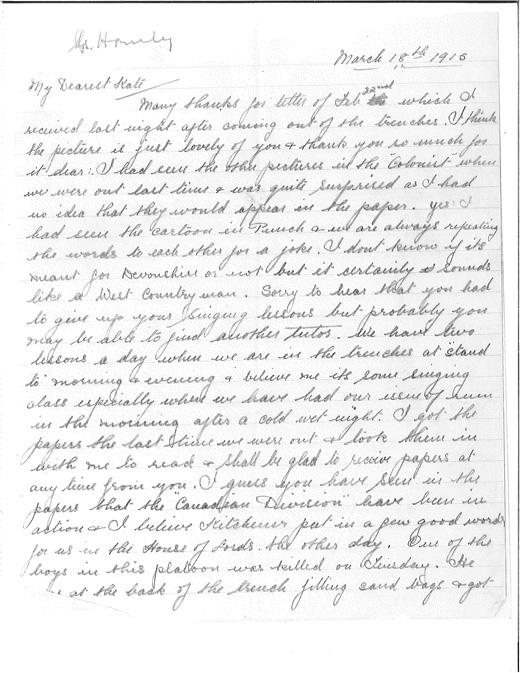 March 18th 1915
My Dearest Kate
Many thanks for letter of Feb 22nd which I
received last night after coming out of the trenches. I think
the picture is just lovely of you & thank you so much for
it dear. I had seen the other pictures in the "Colonist" when
we were out last time & was quite surprised as I had
no idea that they would appear in the paper. yes I
had seen the cartoon in Punch & we are always repeating
the words to each other for a joke. I dont know if its
meant for Devonshire or not but it certainly sounds
like a West Country man. Sorry to hear that you had
to give up your singing lessons but probably you
may be able to find another tutor. We have two
lessons a day when we are in the trenches at "stand
to" morning & evening & believe me its some singing
class especially when we have had our issue of rum
in the morning after a cold wet night. I got the
papers the last time we were out & took them in
with me to read & shall be glad to receive papers at
any time from you. I guess you have seen in the
papers that the "Canadian Division" have been in
action & I believe Kitchener put in a few good words
for us in the House of Lords the other day. One of the
boys in this platoon was killed on Tuesday. He
at the back of the trench filling sand bags & got